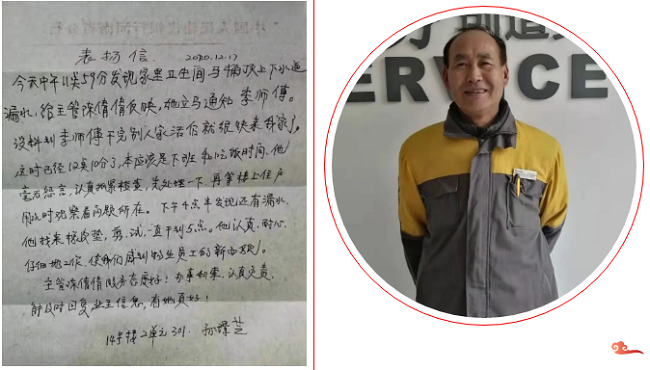 表扬信 2020.12.17
今天中午11点59分发现家里卫生间马桶顶上下水道
漏水，给主管陈倩倩反映，她立马通知李师傅。
没料到李师傅干完别人家活后就很快来我家了，
这时已经12点10分了，本应该是下班和吃饭时间，他
毫无怨言，认真观察检查，先处理一下，再等楼上住户
用水时观察看问题所在。下午4点半发现还有漏水，
他找来橡皮垫，剪、试，一直干到5点。他认真、耐心、
仔细地工作，使我们感到物业员工的新面貌。
主管陈倩倩服务态度好！办事利索、认真负责，
能及时回复业主信息，有她真好！
14号楼2单元301
ERVICE